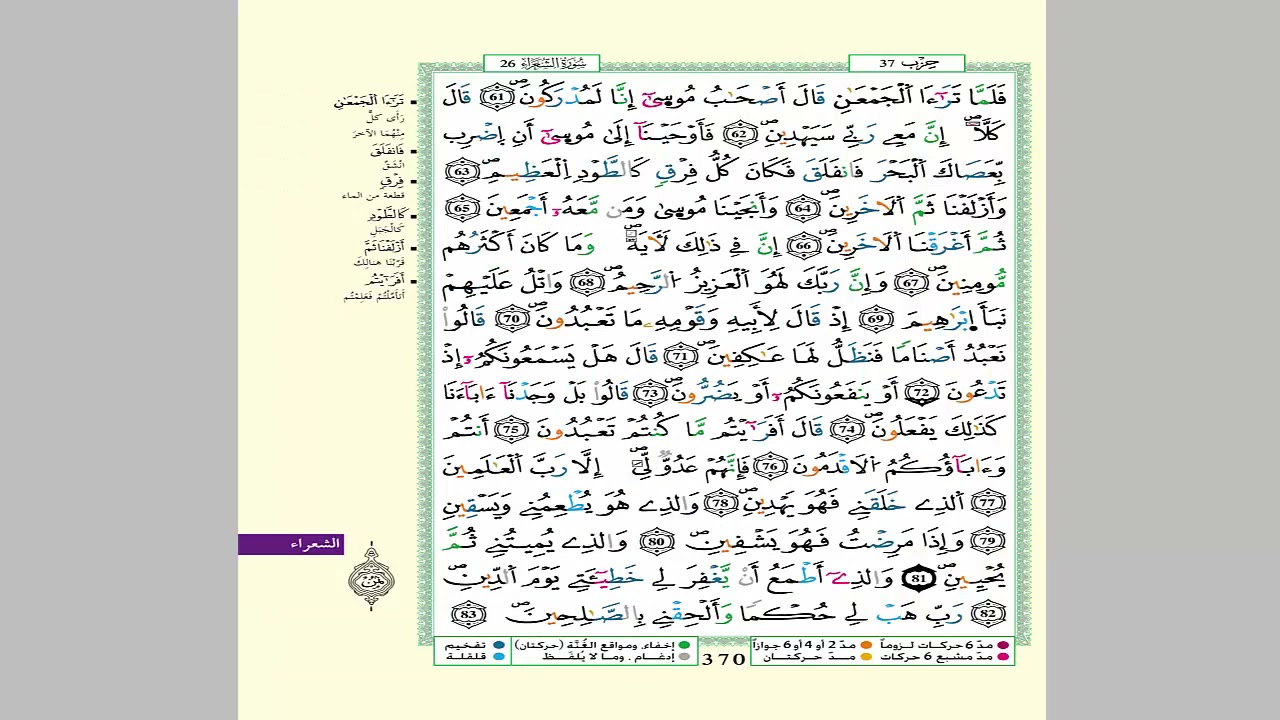 سُورَةُ الشُّعَرَاءِ 26
حِزْب 37
فَلَمَّا تَرَٰٓءَا اَ۬لْجَمْعَٰنِ قَالَ أَصْحَٰبُ مُوس۪ىٰٓ إِنَّا لَمُدْرَكُونَۖ 61 قَالَ
كَلَّآۖ إِنَّ مَعِے رَبِّے سَيَهْدِينِۖ 62 فَأَوْحَيْنَآ إِلَىٰ مُوس۪ىٰٓ أَنِ اِ۪ضْرِب
بِّعَصَاكَ اَ۬لْبَحْرَ فَانفَلَقَ فَكَانَ كُلُّ فِرْقٖ كَالطَّوْدِ اِ۬لْعَظِيمِۖ 63
وَأَزْلَفْنَا ثَمَّ اَ۬لَاخَرِينَۖ 64 وَأَنجَيْنَا مُوس۪ىٰ وَمَن مَّعَهُۥٓ أَجْمَعِينَ 65
ثُمَّ أَغْرَقْنَا اَ۬لَاخَرِينَۖ 66 إِنَّ فِے ذَٰلِكَ لَأٓيَةٗۖ وَمَا كَانَ أَكْثَرُهُم
مُّومِنِينَۖ 67 وَإِنَّ رَبَّكَ لَهُوَ اَ۬لْعَزِيزُ اُ۬لرَّحِيمُۖ 68 وَاتْلُ عَلَيْهِمْ
نَبَأَ اِ۪بْرَٰهِيمَ 69 إِذْ قَالَ لِأَبِيهِ وَقَوْمِهِۦ مَا تَعْبُدُونَۖ 70 قَالُواْ
نَعْبُدُ أَصْنَاماٗ فَنَظَلُّ لَهَا عَٰكِفِينَۖ 71 قَالَ هَلْ يَسْمَعُونَكُمُۥٓ إِذْ
تَدْعُونَ 72 أَوْ يَنفَعُونَكُمُۥٓ أَوْ يَضُرُّونَۖ 73 قَالُواْ بَلْ وَجَدْنَآ ءَابَآءَنَا
كَذَٰلِكَ يَفْعَلُونَۖ 74 قَالَ أَفَرَٰٓيْتُم مَّا كُنتُمْ تَعْبُدُونَ 75 أَنتُمْ
وَءَابَآؤُكُمُ اُ۬لَاقْدَمُونَ 76 فَإِنَّهُمْ عَدُوّٞ لِّيَۖ إِلَّا رَبَّ اَ۬لْعَٰلَمِينَ
77 اَ۬لذِے خَلَقَنِے فَهُوَ يَهْدِينِۖ 78 وَالذِے هُوَ يُطْعِمُنِے وَيَسْقِينِ
79 وَإِذَا مَرِضْتُ فَهُوَ يَشْفِينِۖ 80 وَالذِے يُمِيتُنِے ثُمَّ
يُحْيِينِۖ 81 وَالذِےٓ أَطْمَعُ أَنْ يَّغْفِرَ لِے خَطِيٓـَٔتِے يَوْمَ اَ۬لدِّينِۖ
82 رَبِّ هَبْ لِے حُكْماٗ وَأَلْحِقْنِے بِالصَّٰلِحِينَۖ 83
تَرَٰٓءَا اَ۬لْجَمْعَٰنِ
رَأى كلٌّ
مِنْهُمَا الآخرَ
فَانفَلَقَ
انْشَقَّ
فِرْقٖ
قطعة من الماء
كَالطَّوْدِ
كَالْجَبَلِ
أَزْلَفْنَا ثَمَّ
قَرَّبْنَا هنالِكَ
أَفَرَٰٓيْتُم
أَتَأَمَّلْتُمْ فَعَلِمْتُم
الشعراء
مدّ 6 حركات لـزوماً مدّ 2 أو 4 أو 6 جوازاً إخفاء، ومواقع الغُنَّة (حركتان) تفخيم
مدّ مشبع 6 حركات مــدّ حـركـتـــان إدغــام، ومـا لا يُلفــظ قلقلة
370